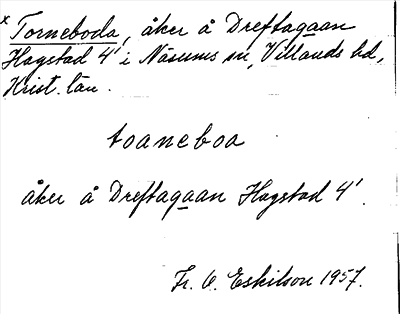 x Torneboda, åker å Dreftagaan
Hagstad 4¹ i Näsums sn, Villands hd,
Krist. län.
toaneboa
åker å Dreftagaan Hagstad 4¹.
Fr. O. Eskilson 1957.